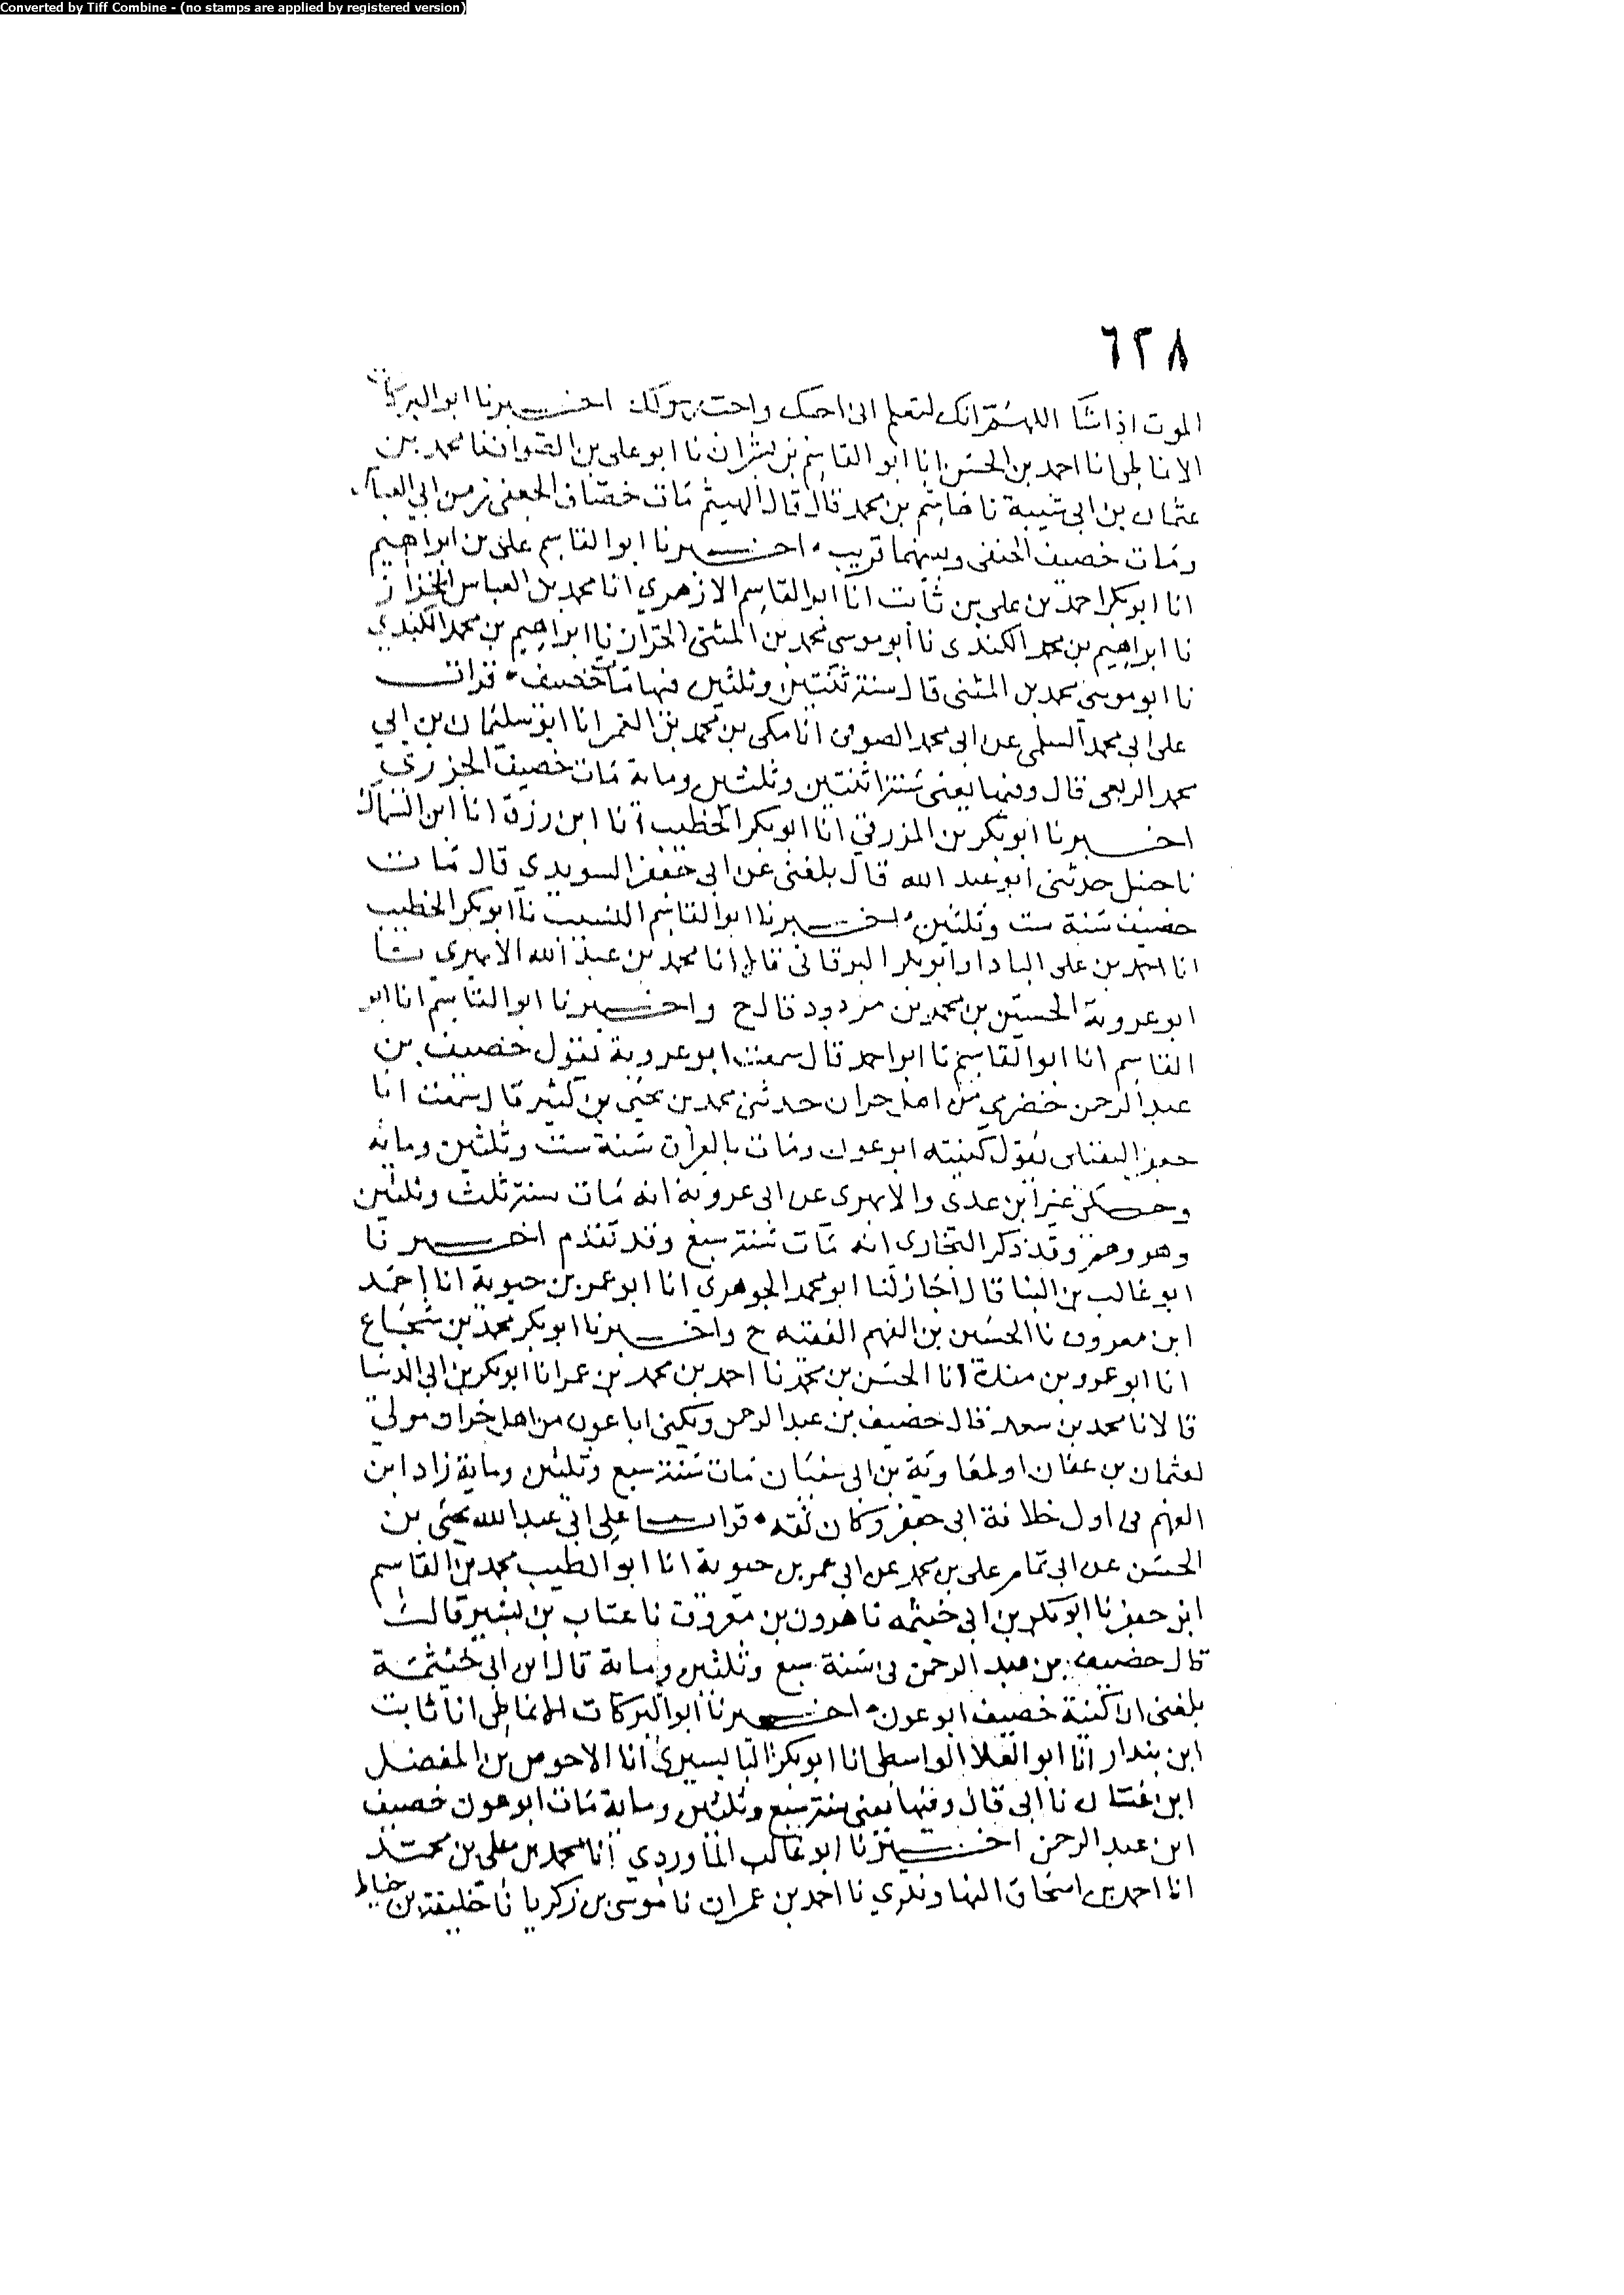 Converted by Tiff Combine - (no stamps are applied by registered version)
٦٢٨
الموت اذا شا اللهم انك لتعلم انى احبك واحب رسولك اخبرنا ابو البركات
الانماطى انا احمد بن الحسن انا ابو القاسم بن بشران نا ابو على بن الصواف نا محمد بن
عثمان بن ابى شيبة نا هاشم بن محمد قال قال الهيثم مات خصاف الجعفى زمن ابي العباس
ومات خصيف الحنفى وبينهما قريب اخبرنا ابو القاسم على بن ابراهيم
انا ابو بكر احمد بن على بن ثابت انا ابو القاسم الازهري انا محمد بن العباس الخزاز
نا ابراهيم بن محمد الكندى نا ابو موسى محمد بن المثنى نا ابراهيم بن محمد الكندي
نا ابو موسى محمد بن المثنى قال سنة ثنتين وثلثين فيها مات خصيف قرات
على ابى محمد السلمى عن ابى محمد الصوفى انا مكى بن محمد بن الغمر انا ابو سليمان بن ابي
محمد الربعى قال وفيها يعنى سنة اثنتين وثلثين وماية مات خصيف الجزري
اخبرنا ابو بكر بن المزرفي انا ابو بكر الخطيب انا ابن رزق انا ابن السماك
نا حنبل حدثنى ابو عبد الله قال بلغنى عن ابى جعفر السويدي قال مات
خصيف سنة ست وثلثين اخبرنا ابو القاسم النسيب نا ابو بكر الخطيب
انا احمد بن على البادا وابو بكر البرقانى قالا انا محمد بن عبد الله الابهرى نا
ابو عروبة الحسين بن محمد بن مردود قال ح واخبرنا ابو القاسم انا ابو
القاسم انا ابو القاسم نا ابو احمد قال سمعت ابو عروبة يقول خصيف بن
عبد الرحمن خضري من اهل حران حدثنى محمد بن يحيى بن كثير قال سمعت ابا
جعفر النفيلى يقول كنيته ابو عون ومات بالعراق سنة ست وثلثين وماية
وحكى غير ابن عدى والابهرى عن ابى عروبة انه مات سنة ثلث وثلثين
وهو وهم وقد ذكر البخارى انه مات سنة سبع وقد تقدم اخبرنا
ابو غالب بن البنا قال اجاز لنا ابو محمد الجوهري انا ابو عمر بن حيوية انا احمد
ابن معروف نا الحسين بن الفهم الفقيه ح واخبرنا ابو بكر محمد بن شجاع
انا ابو عمرو بن مندة انا الحسن بن محمد نا احمد بن محمد بن عمر انا ابو بكر بن ابى الدنيا
قالا نا محمد بن سعد قال خصيف بن عبد الرحمن ويكنى ابا عون من اهل حران مولى
لعثمان بن عفان او لمعاوية بن ابى سفيان مات سنة سبع وثلثين وماية زاد ابن
الفهم فى اول خلافة ابى جعفر وكان ثقه قرات على ابى عبد الله يحيى بن
الحسن عن ابى تمام على بن محمد عن ابى عمر بن حيوية انا ابو الطيب محمد بن القاسم
ابن جعفر نا ابو بكر بن ابى خيثمه نا هرون بن معروف نا عتاب بن بشير قال
قال خصيف بن عبد الرحمن فى سنة سبع وثلثين وماية قال ابن ابى خيثمة
بلغنى ان كنية خصيف ابو عون اخبرنا ابو البركات الانماطى انا ثابت
ابن بندار انا ابو العلا الواسطى انا ابو بكر البابسيرى انا الاحوص بن المفضل
ابن غسان نا ابى قال وفيها يعنى سنة سبع وثلثين وماية مات ابو عون خصيف
ابن عبد الرحمن اخبرنا ابو غالب الماوردي انا محمد بن على بن محمد
انا احمد بن اسحاق النهاوندي نا احمد بن عمران نا موسى بن زكريا نا خليفة بن خياط